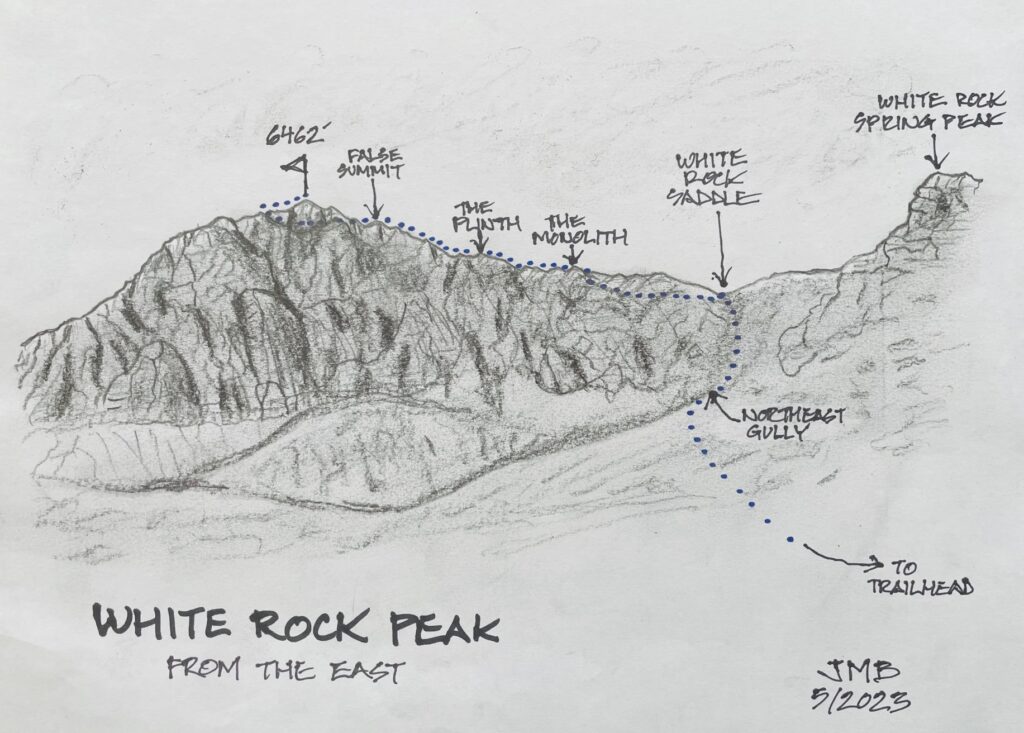 WHITE ROCK
SPRING PEAK
6462'
FALSE
SUMMIT
WHITE
ROCK
SADDLE
THE
PLINTH
THE
MONOLITH
NORTHEAST
GULLY
TO
TRAILHEAD
WHITE ROCK PEAK
FROM THE EAST
JMB
5/2023